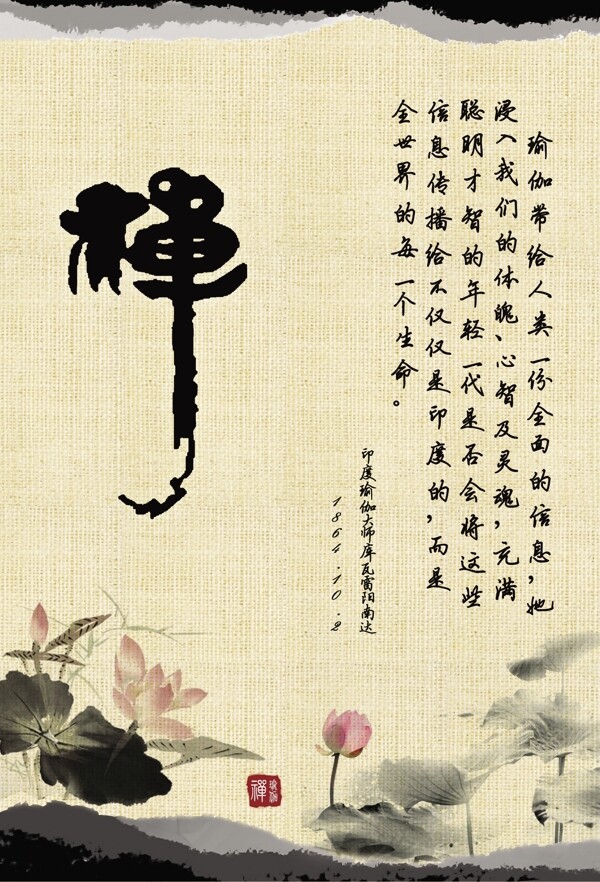 禅
瑜伽带给人类一份全面的信息，她
浸入我们的体魄、心智及灵魂，充满
聪明才智的年轻一代是否会将这些
信息传播给不仅仅是印度的，而是
全世界的每一个生命。
印度瑜伽大师库瓦雷阳南达
1864.10.2
瑜伽
禪